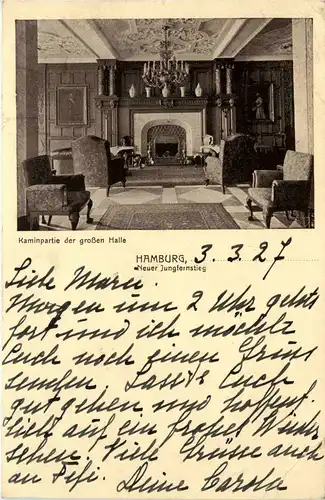 Kaminpartie der großen Halle
HAMBURG, 3. 3. 27
Neuer Jungfernstieg
Liebe Maru.
Morgen um 2 Uhr gehts
fort und ich möchte
Euch noch einen Gruss
senden. Lasst's Euch
gut gehen und hoffent-
lich auf ein frohes Wieder
sehen. Viele Grüsse auch
an Fifi. Deine Carola